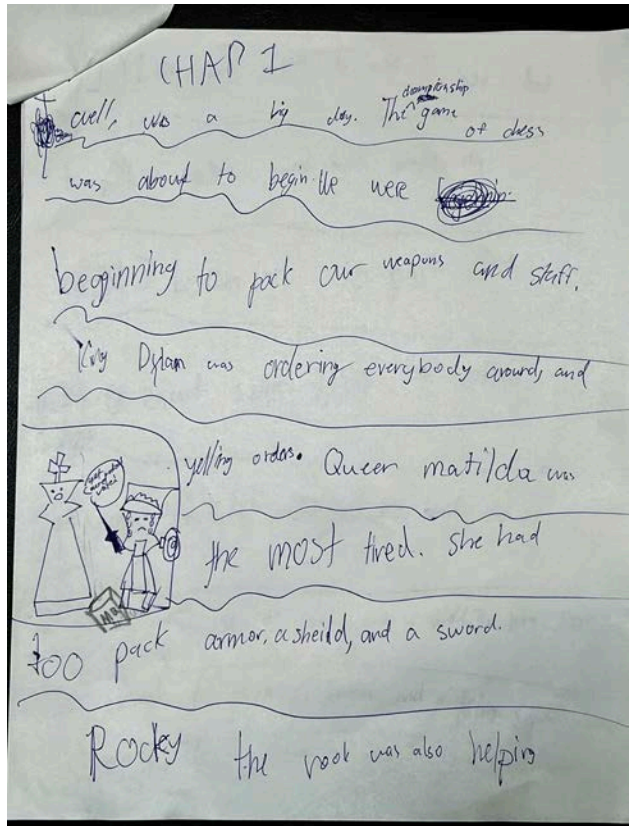 CHAP 1
well, was a big day. The championship game of chess
was about to begin. We were
beginning to pack our weapons and staff.
King Dylan was ordering everybody around, and
yelling orders. Queen matilda was
the most tired. she had
too pack armor, a sheild, and a sword.
Rocky the rook was also helping